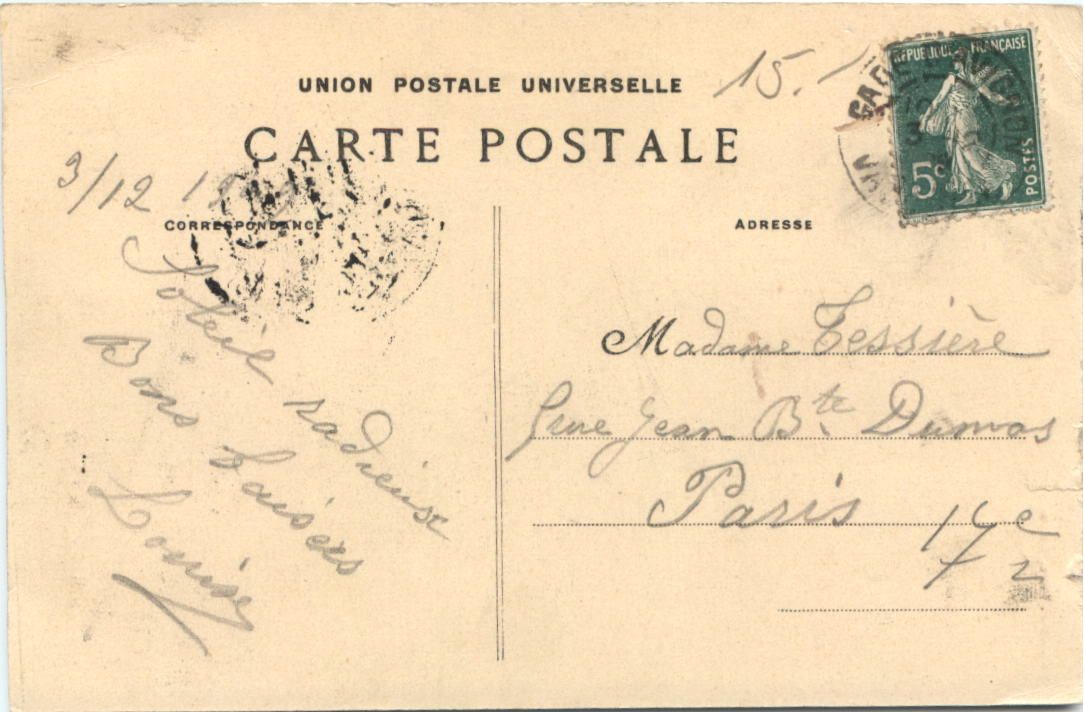 UNION POSTALE UNIVERSELLE
15.1
CARTE POSTALE
RÉPUBLIQUE FRANÇAISE
5c
POSTES
GARE AVIGNON
3/12
CORRESPONDANCE
ADRESSE
Soleil radieuse
Bons baisers
Louise
Madame Tessière
Rue Jean Bte Dumas
Paris 17e